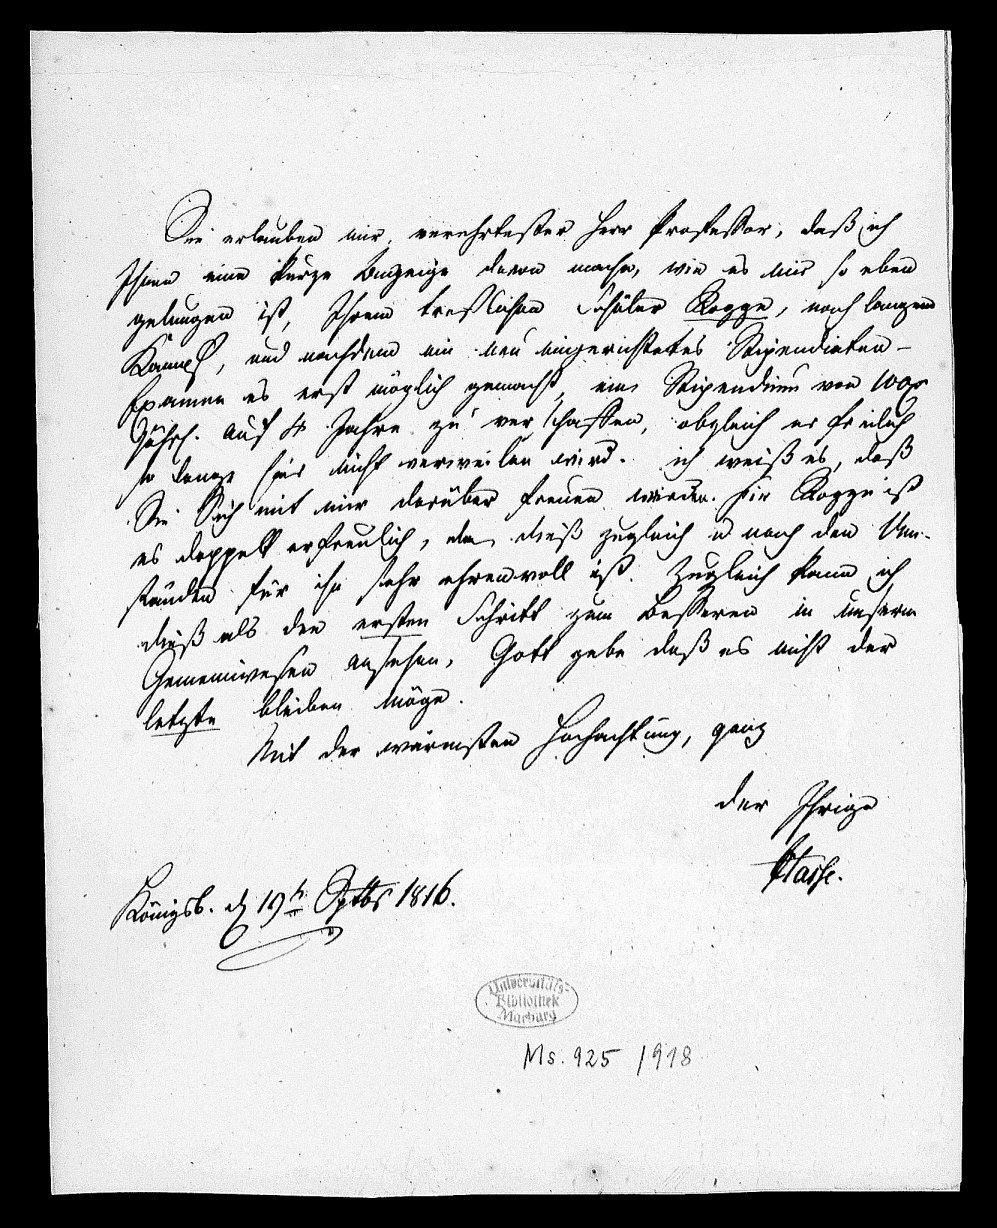 Sie erlauben mir, verehrtester Herr Professor, daß ich
Ihnen eine kurze Anzeige davon mache, wie es mir so eben
gelungen ist, Ihrem trefflichen Schüler Rogge, nach langem
Kampf, und nachdem ein neu eingerichtetes Stipendiaten-
Examen es erst möglich gemacht, ein Stipendium von 100
jährl. auf 4 Jahre zu verschaffen, obgleich er freilich
so lange hier nicht verweilen wird. ich weiß es, daß
Sie Sich mit mir darüber freuen werden. Für Rogge ist
es doppelt erfreulich, da dieß zugleich u nach den Um-
ständen für ihn sehr ehrenvoll ist. Zugleich kann ich
dieß als den ersten Schritt zum Besseren in unserm
Gemeinwesen ansehen, Gott gebe daß es nicht der
letzte bleiben möge.
Mit der wärmsten Hochachtung, ganz
der Ihrige
Königsb. d 19t Sptbr 1816.
Universitäts-
Bibliothek
Marburg
Ms. 925 / 918